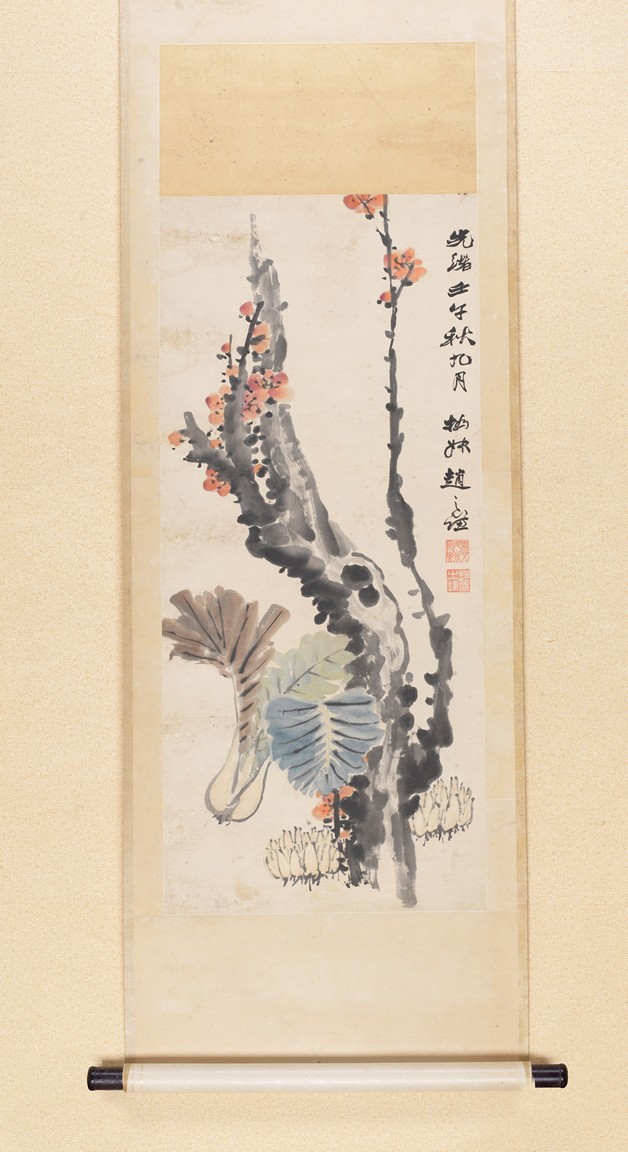 光緒壬午秋九月 撝叔趙之謙